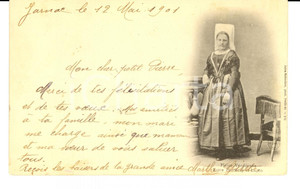 Jarnac le 12 Mai 1901
Mon cher petit Pierre
Merci de tes félicitations
et de tes vœux. Mes amitiés
à ta famille. mon mari
me charge ainsi que maman
et ma sœur de vous saluer
tous.
Reçois les baisers de la grande amie